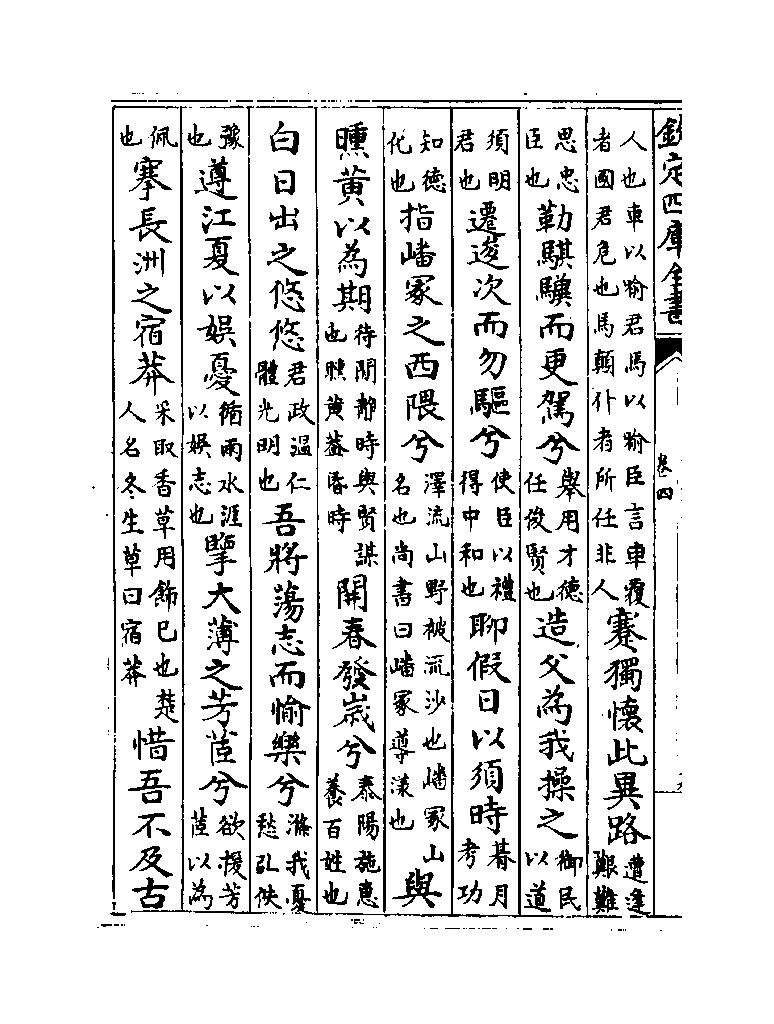 欽定四庫全書
卷四
人也車以喻君馬以喻臣言車覆者國君危也馬顛仆者所任非人蹇獨懷此異路遭逢艱難
思忠臣也勒騏驥而更駕兮舉用才德任俊賢也造父為我操之御民以道
須明君也遷逡次而勿驅兮使臣以禮得中和也聊假日以須時朞月考功
知德化也指嶓冢之西隈兮澤流山野被流沙也嶓冢山名也尚書曰嶓冢導漾也與
曛黄以為期待閒靜時與賢謀也曛黄蓋昏時開春發歲兮泰陽施惠養百姓也
白日出之悠悠君政温仁體光明也吾將蕩志而愉樂兮滌我憂愁弘佚
豫也遵江夏以娛憂循兩水涯以娛志也擥大薄之芳茝兮欲援芳茝以為
佩也搴長洲之宿莽采取香草用飾己也楚人名冬生草曰宿莽惜吾不及古